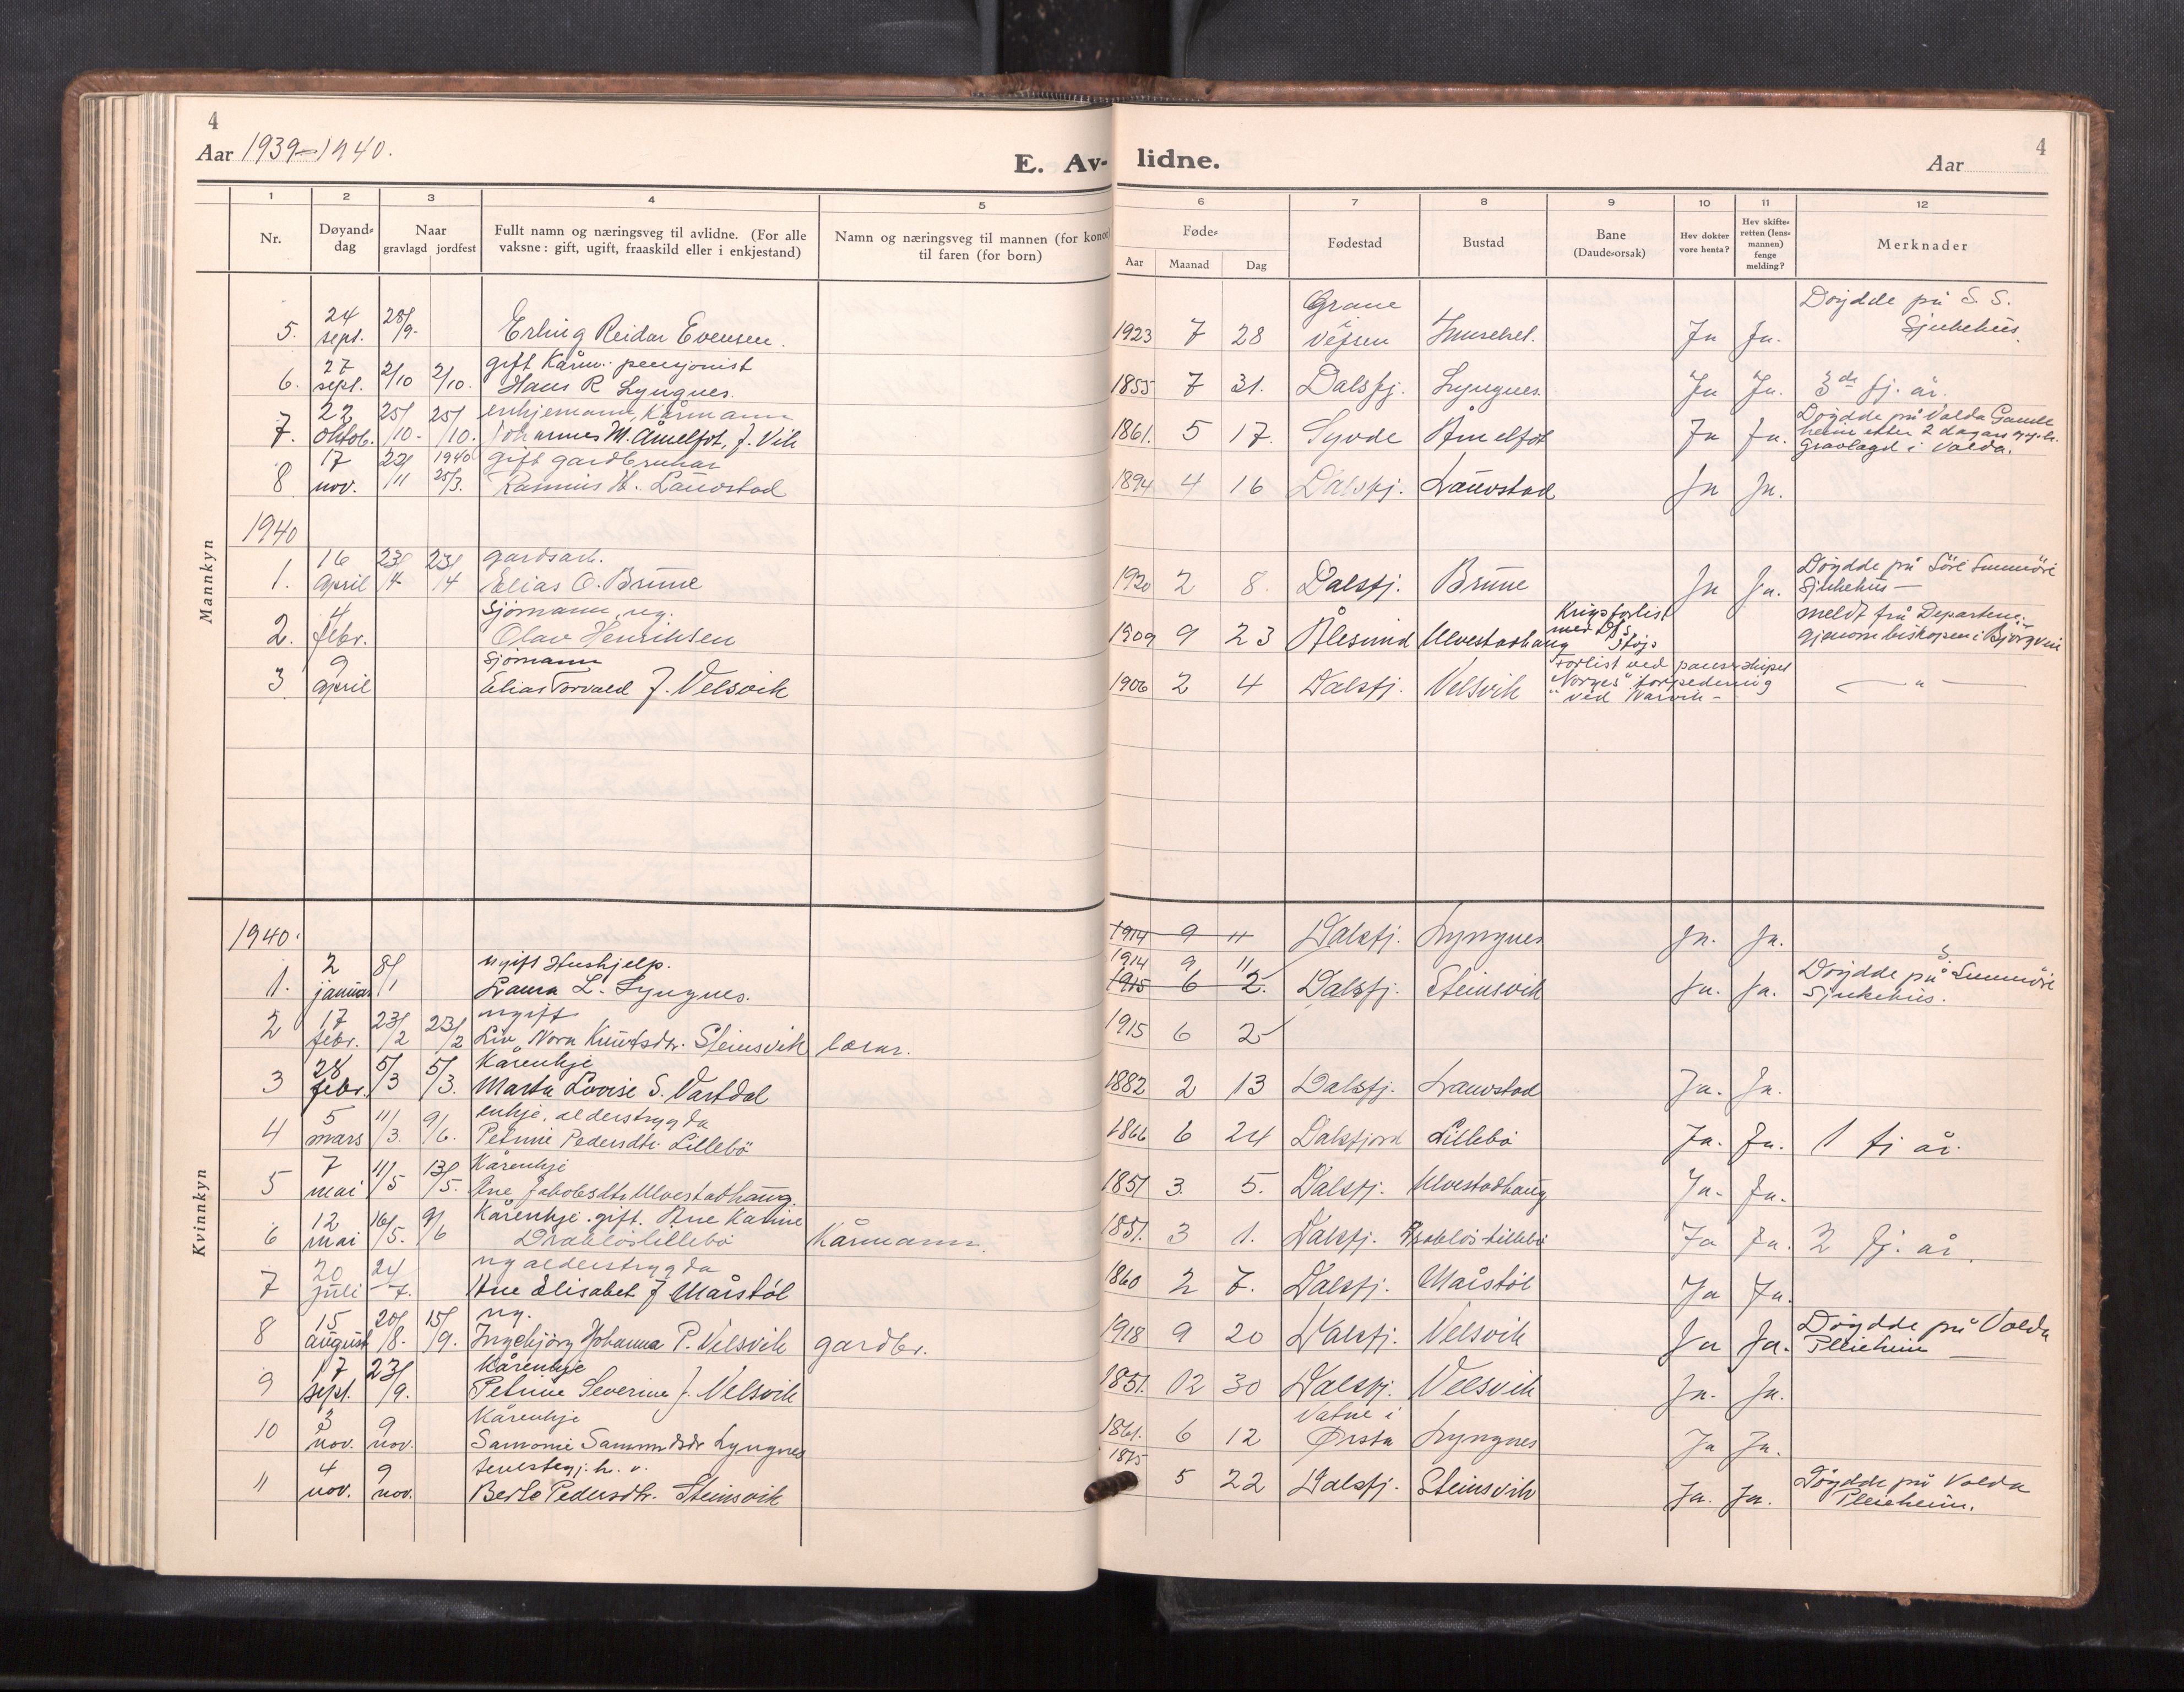 4
Aar 1939-1940.
E. Av-
lidne.
4
Aar
1 2 3 4 5 6 7 8 9 10 11 12
Nr. Døyand-dag Naar gravlagd jordfest Fullt namn og næringsveg til avlidne. (For alle vaksne: gift, ugift, fraaskild eller i enkjestand) Namn og næringsveg til mannen (for konor) til faren (for born) Føde- Aar Maanad Dag Fødestad Bustad Bane (Daude-orsak) Hev dokter vore henta? Hev skifte-retten (lens-mannen) fenge melding? Merknader
Mannkyn
5. 24 sept. 28/9. Erling Reidar Evensen. 1923 7 28 Grane i Vefsen Ja Ja. Døydde på S. S. Sjukehus.
6. 27 sept. 2/10 2/10. gift Kårm. pensjonist Hans R Lyngnes. 1855 7 31. Dalsfj. Lyngnes. Ja Ja. 3de fj. år.
7. 22 oktob. 25/10. 25/10. enkjemann, Kårmann Johannes M. Åmelfot, f. Vik 1861. 5 17. Syvde Åmelfot Ja Ja. Døydde på Volda Gamleheim etter 2 dagars Gravlagd i Volda.
8 17 nov. 22/11 1940 25/3. gift gardbrukar Rasmus H. Lauvstad 1894 4 16 Dalsfj. Lauvstad Ja Ja.
1940
1. 16 April 23/4 23/4 gardsarb. Elias O. Brune 1920 2 8. Dalsfj. Brune Ja Ja. Døydde på Söre Sunnmöre Sjukehus —
2. 4 febr. Sjømann, ug. Olav Henriksen 1909 9 23 Ålesund Ulvestadhaug Krigsforlist med D/S meldt frå Departem. gjenom biskopen i Bjørgvin
3 9 April Sjømann Elias Torvald J. Velsvik 1906 2 4 Dalsfj. Velsvik Forlist ved panserskipet "Norges" torpedering ved Narvik - — " —
Kvinnkyn
1940. 1914 9 11 Dalsfj. Lyngnes Ja. Ja.
1. 2 januar 8/1 ugift Hushjelp. Laura L. Lyngnes. 1914 9 11 1915 6 2. Dalsfj. Steinsvik Ja. Ja. Døydde på S. Sunnmöre Sjukehus.
2 17 febr. 23/2 23/2 ugift Liv Nora Knutsdtr. Steinsvik lærar. 1915 6 2
3 28 febr. 5/3 5/3. Kårenkje Marta Lovise S. Vartdal 1882 2 13 Dalsfj. Lauvstad Ja. Ja.
4 5 mars 11/3. 9/6. enkje, alderstrygda Petrine Pedersdtr. Lillebö 1866 6 24 Dalsfjord Lillebö Ja. Ja. 1 fj år.
5 7 mai 11/5 13/5. Kårenkje Ane Jakobsdtr. Ulvestadhaug. 1851 3. 5. Dalsfj. Ulvestadhaug Ja. Ja.
6 12 mai 16/5. 9/6 Kårenkje. gift. Ane Karine Drabløslillebö Kårmann. 1851. 3 1. Dalsfj. Drabløs-Lillebö Ja Ja. 2 fj. år.
7 20 juli 24 - 7. ug alderstrygda Ane Elisabet J Maaråstöl 1860 2 7. Dalsfj. Ja Ja.
8 15 august 20/8. 15/9. ug. Ingebjörg Johanna P. Velsvik gardbr. 1918 9 20 Dalsfj. Velsvik Ja Ja. Døydde på Volda Pleieheim —
9 17 sept. 23/9. Kårenkje Petrine Severine J. Velsvik 1851. 12 30 Dalsfj. Velsvik Ja. Ja.
10 3 nov. 9 nov. Kårenkje Lyngnes 1861. 6 12 Vatne i Ørsta Lyngnes Ja Ja.
11 4 nov. 9 nov. Berte Pedersdtr. Steinsvik 1875 5 22 Dalsfj. Steinsvik Ja. Ja. Døydde på Volda Pleieheim.